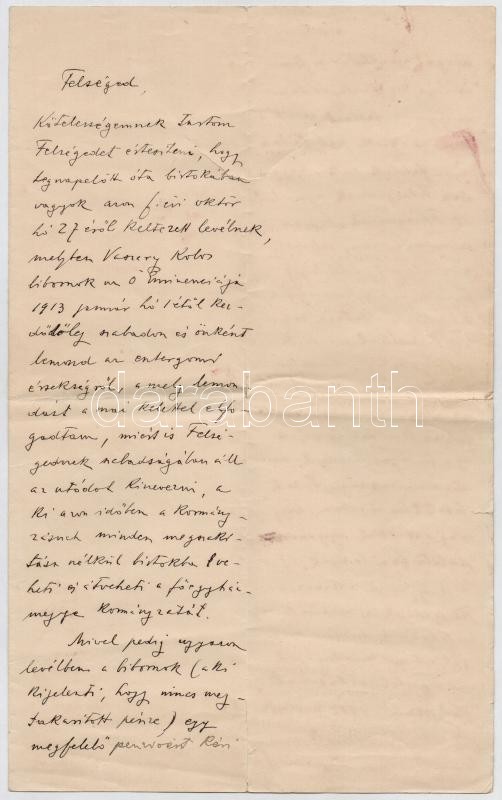 Felséged,
Kötelességemnek tartom
Felségedet értesíteni, hogy
tegnapelőtt óta birtokában
vagyok azon f. évi október
hó 27 éről keltezett levélnek,
melyben Vaszary Kolos
bibornok úr Ő Eminenciája
1913 január hó 1étől kez-
dődőleg szabadon és önként
lemond az esztergomi
érsekségről, a mely lemon-
dást a mai kelettel elfo-
gadtam, miért is Felsé-
gednek szabadságában áll
az utódot kinevezni, a
ki azon időben a kormány-
zásnak minden megszakí-
tása nélkül birtokba ve-
heti és átveheti a főegyház-
megye kormányzatát.
Mivel pedig ugyanazon
levélben a bibornok (a ki
kijelenti, hogy nincs meg-
takarított pénze) egy
megfelelő penziót kéri
darabanth.com